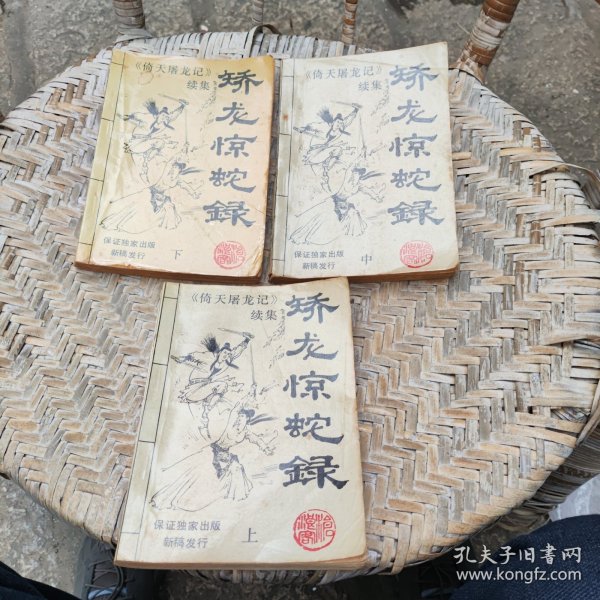 《倚天屠龙记》
续集
矫龙惊蛇録
保证独家出版
新稿发行
下
《倚天屠龙记》
续集
矫龙惊蛇録
保证独家出版
新稿发行
中
《倚天屠龙记》
续集
矫龙惊蛇録
保证独家出版
新稿发行
上
孔夫子旧书网
www.kongfz.com